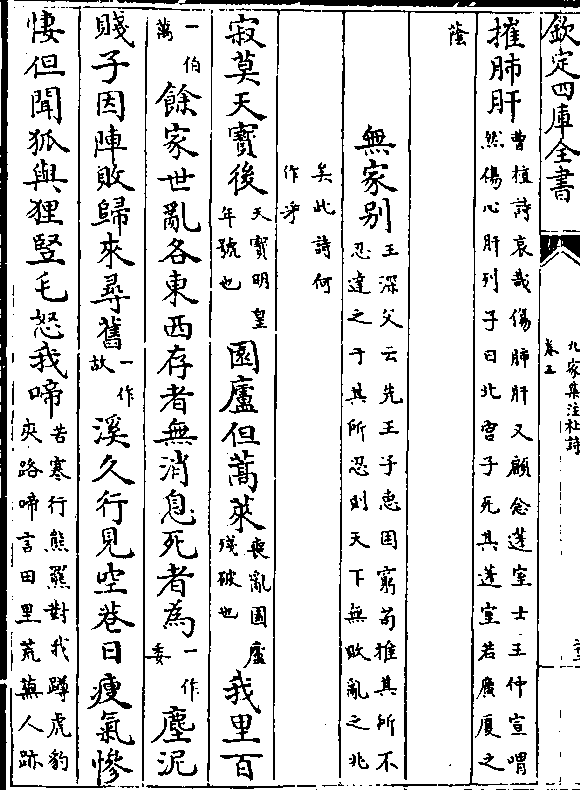 欽定四庫全書
九家集注杜詩
卷五
摧肺肝
曹植詩哀哉傷肺肝又顧念蓬室士王仲宣喟
然傷心肝列子曰北宫子死其蓬室若廣厦之
蔭
無家别
王深父云先王子恵困窮苟推其所不
忍達之于其所忍則天下無敗亂之兆
矣此詩何
作乎
寂莫天寶後
天寶明皇
年號也
園廬但蒿萊
喪亂園廬
殘破也
我里百
一作
萬
餘家世亂各東西存者無消息死者為
一作
委
塵泥
賤子因陣敗歸來尋舊
一作
故
溪久行見空巷日瘦氣慘
悽但聞狐與狸豎毛怒我啼
苦寒行熊羆對我蹲虎豹
夾路啼言田里荒蕪人跡